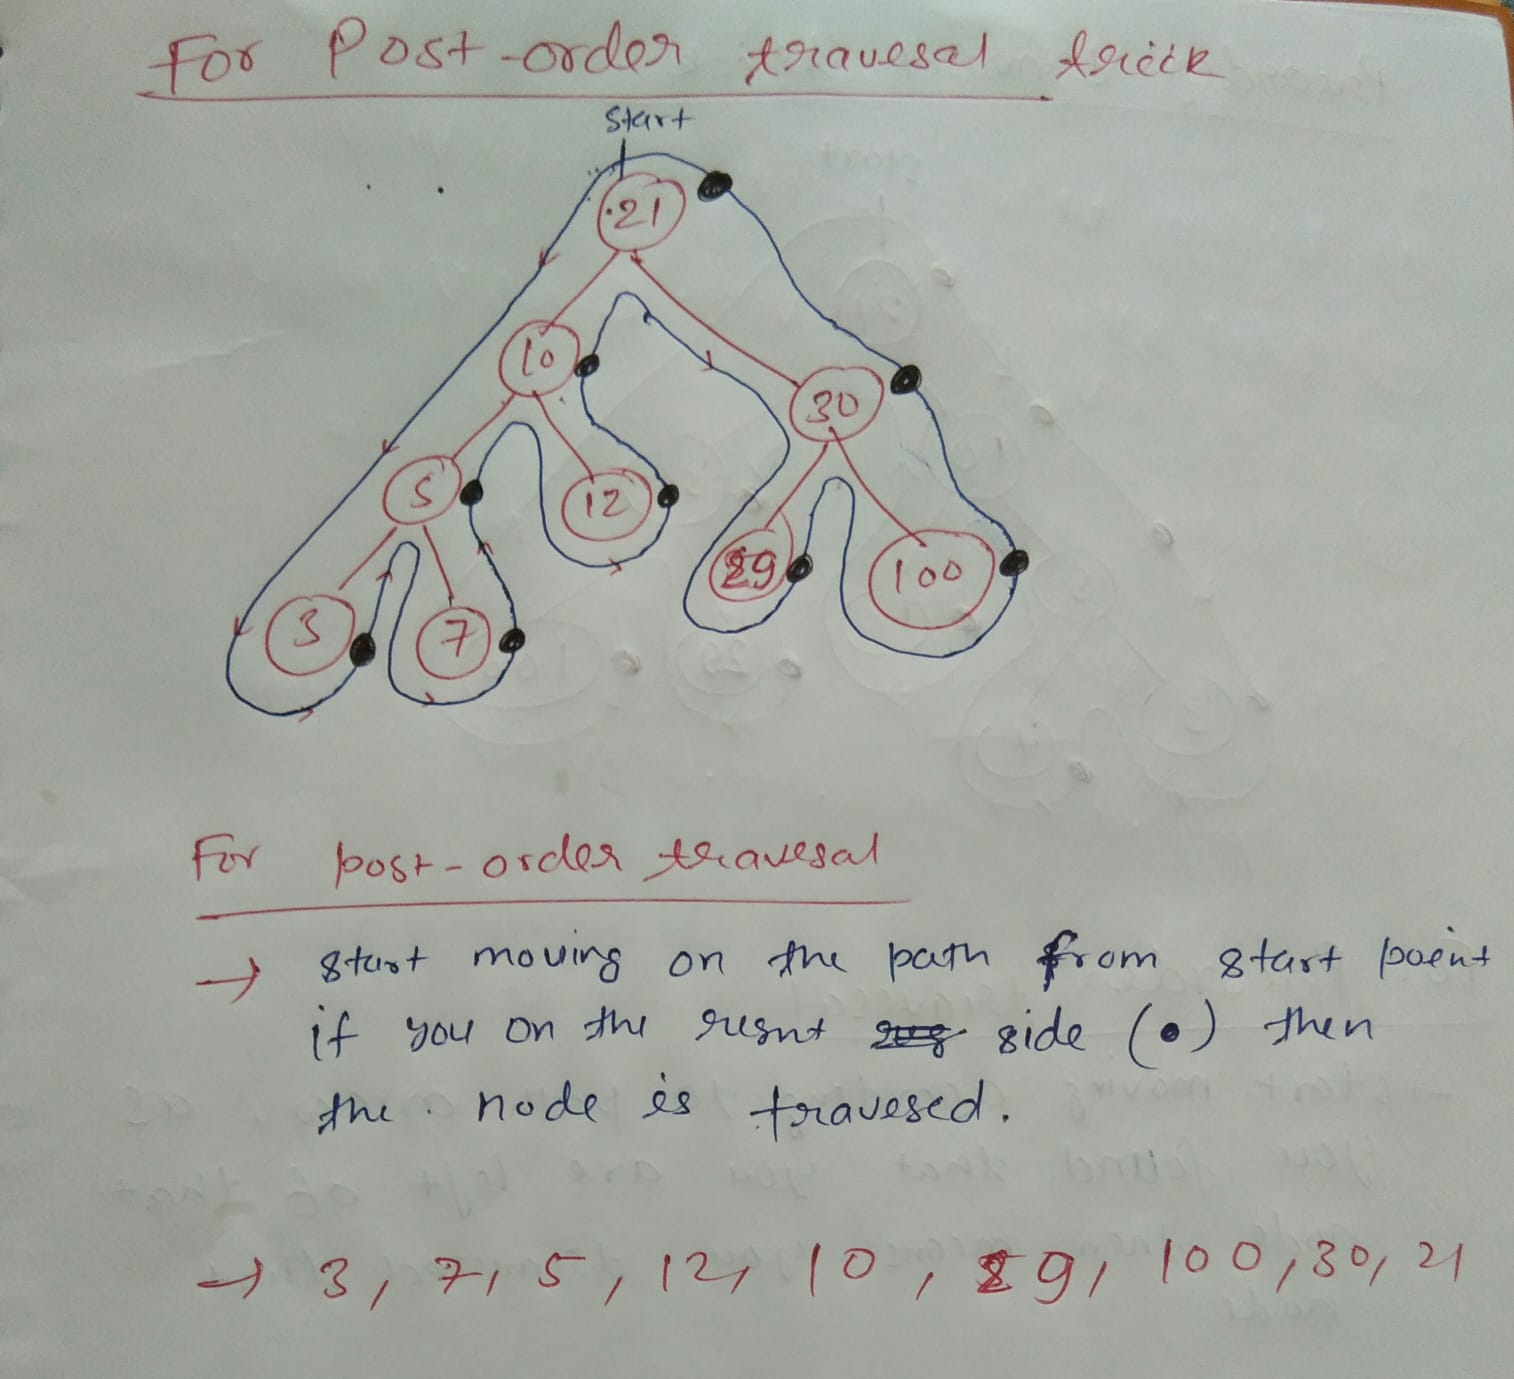 For Post-order travesal trick
Start
21
10
30
5
12
100
3
7
For post-order travesal
→ start moving on the path from start point
if you on the right side (•) then
the node is travesed.
→ 3, 7, 5, 12, 10, 29, 100, 30, 21